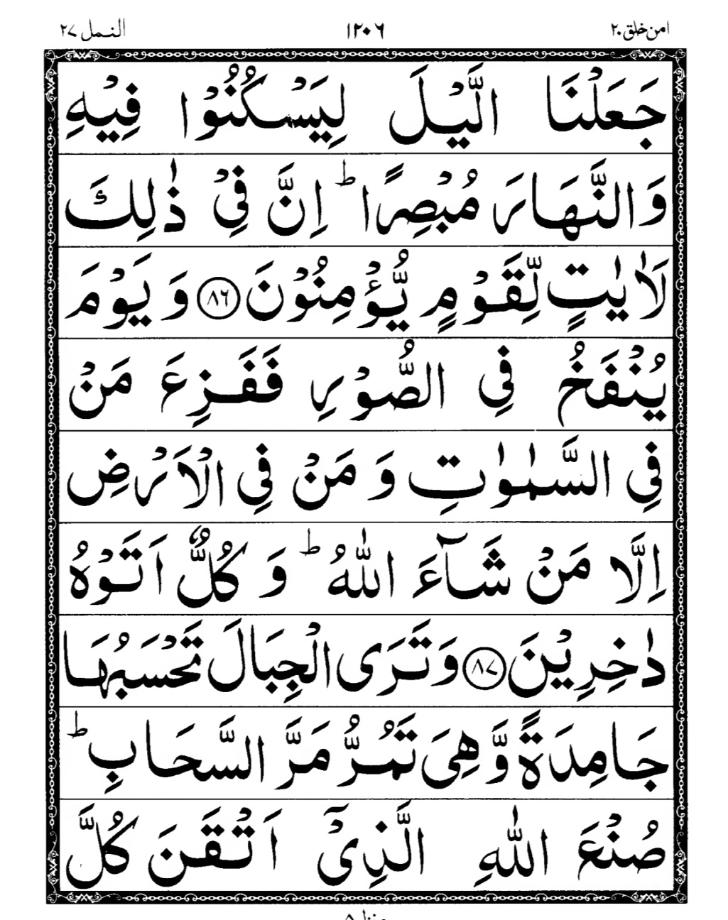 امن خلق ٢٠ ١٢٠٦ النمل ٢٧
جَعَلْنَا الَّيْلَ لِيَسْكُنُوْا فِيْهِ
وَالنَّهَارَ مُبْصِرًا ؕ اِنَّ فِيْ ذٰلِكَ
لَاٰيٰتٍ لِّقَوْمٍ يُّؤْمِنُوْنَ ﴿٨٦﴾ وَ يَوْمَ
يُنْفَخُ فِي الصُّوْرِ فَفَزِعَ مَنْ
فِي السَّمٰوٰتِ وَ مَنْ فِي الْاَرْضِ
اِلَّا مَنْ شَآءَ اللّٰهُ ؕ وَ كُلٌّ اَتَوْهُ
دٰخِرِيْنَ ﴿٨٧﴾ وَتَرَى الْجِبَالَ تَحْسَبُهَا
جَامِدَةً وَّهِيَ تَمُرُّ مَرَّ السَّحَابِ ؕ
صُنْعَ اللّٰهِ الَّذِيْۤ اَتْقَنَ كُلَّ